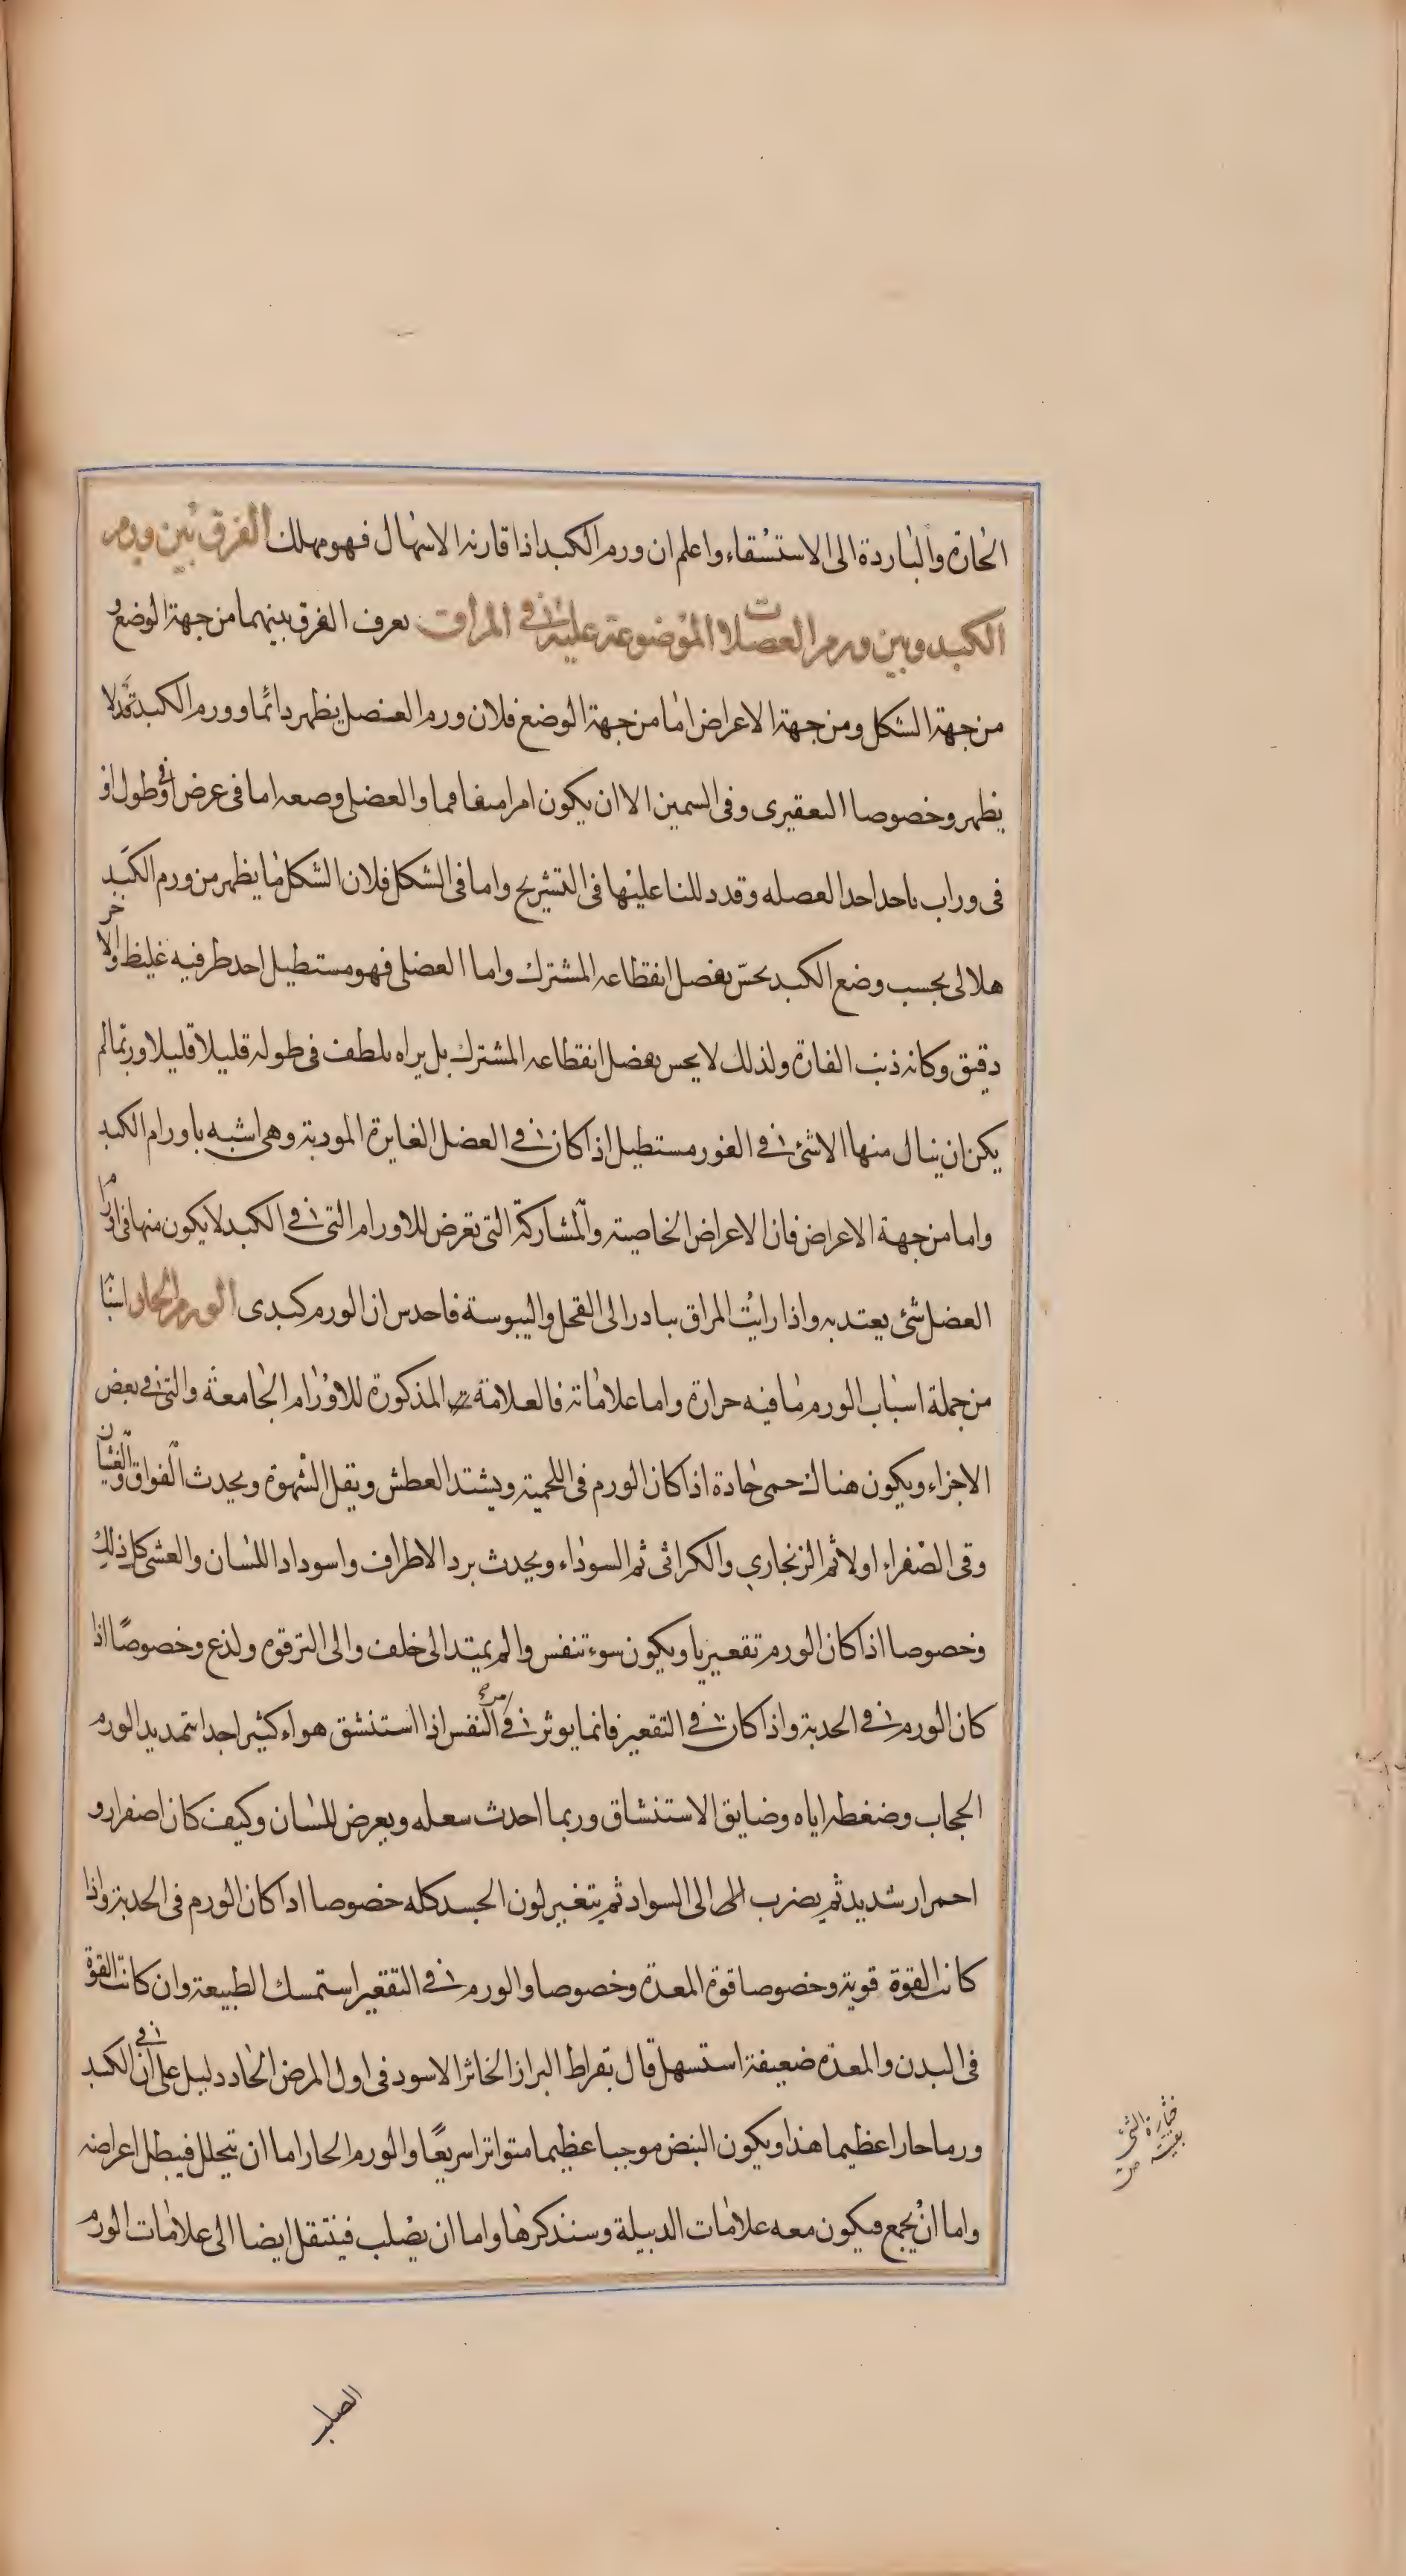 الحارة والباردة الى الاستسقاء واعلم ان ورم الكبد اذا قارنه الاسهال فهو مهلك الفرق بين ورم
الكبد وبين ورم العضلات الموضوعة عليه في المراق يعرف الفرق بينهما من جهة الوضع و
من جهة الشكل ومن جهة الاعراض اما من جهة الوضع فلان ورم العضل يظهر دائما وورم الكبد قد لا
يظهر وخصوصا التقعيري وفي السمين الا ان يكون امرا متفاقما والعضلي وضعه اما في عرض او في طول او
في وراب ياخذ اخذ العضله وقد دللنا عليها في التشريح واما في الشكل فلان الشكل ما يظهر من ورم الكبد
هلالي بحسب وضع الكبد يحس بفصل انقطاعه المشترك واما العضلي فهو مستطيل احد طرفيه غليظ والاخر
دقيق وكانه ذنب الفارة ولذلك لا يحس بفصل انقطاعه المشترك بل يراه يلطف في طوله قليلا قليلا وربما لم
يكن ان ينال منها الا شئ في الغور مستطيل اذا كان في العضل الغايرة الموربة وهي اشبه باورام الكبد
واما من جهة الاعراض فان الاعراض الخاصية والمشاركة التي تعرض للاورام التي في الكبد لا يكون منها في اورام
العضل شئ يعتد به واذا رايت المراق يبادر الى القحل واليبوسة فاحدس ان الورم كبدى الورم الحار اسبا
من جملة اسباب الورم ما فيه حرارة واما علاماته فالعلامة المذكورة للاورام الجامعة والتي في بعض
الاجزاء ويكون هناك حمى حادة اذا كان الورم في اللحمية ويشتد العطش ويقل الشهوة ويحدث الفواق والغثيان
وقى الصفراء اولا ثم الزنجاري والكراثى ثم السوداء ويحدث برد الاطراف واسوداد اللسان والغشى كل ذلك
وخصوصا اذا كان الورم تقعيريا ويكون سوء تنفس والم يمتد الى خلف والى الترقوه ولذع وخصوصًا اذا
كان الورم في الحدبة واذا كان في التقعير فانما يوثر في امر النفس اذا استنشق هواء كثيرا جدا بتمديد الورم
الحجاب وضغطه اياه وضايق الاستنشاق وربما احدث سعله ويعرض للسان وكيف كان اصفرار و
احمرار شديد ثم يضرب الى السواد ثم يتغير لون الجسد كله خصوصا اذا كان الورم في الحدبة واذا
كانت القوة قوية وخصوصا قوة المعدة وخصوصا والورم في التقعير استمسك الطبيعة وان كانت القوة
في البدن والمعدة ضعيفة استسهل قال بقراط البراز الخاثر الاسود في اول المرض الحاد دليل على ان في الكبد
ورما حارا عظيما هذا ويكون النبض موجيا عظيما متواترا سريعًا والورم الحار اما ان يتحلل فيبطل اعراضه
واما ان يجمع فيكون معه علامات الدبيلة وسنذكرها واما ان يصلب فينتقل ايضا الى علامات الورم
الصلب
خثارة الشئ
بقيته